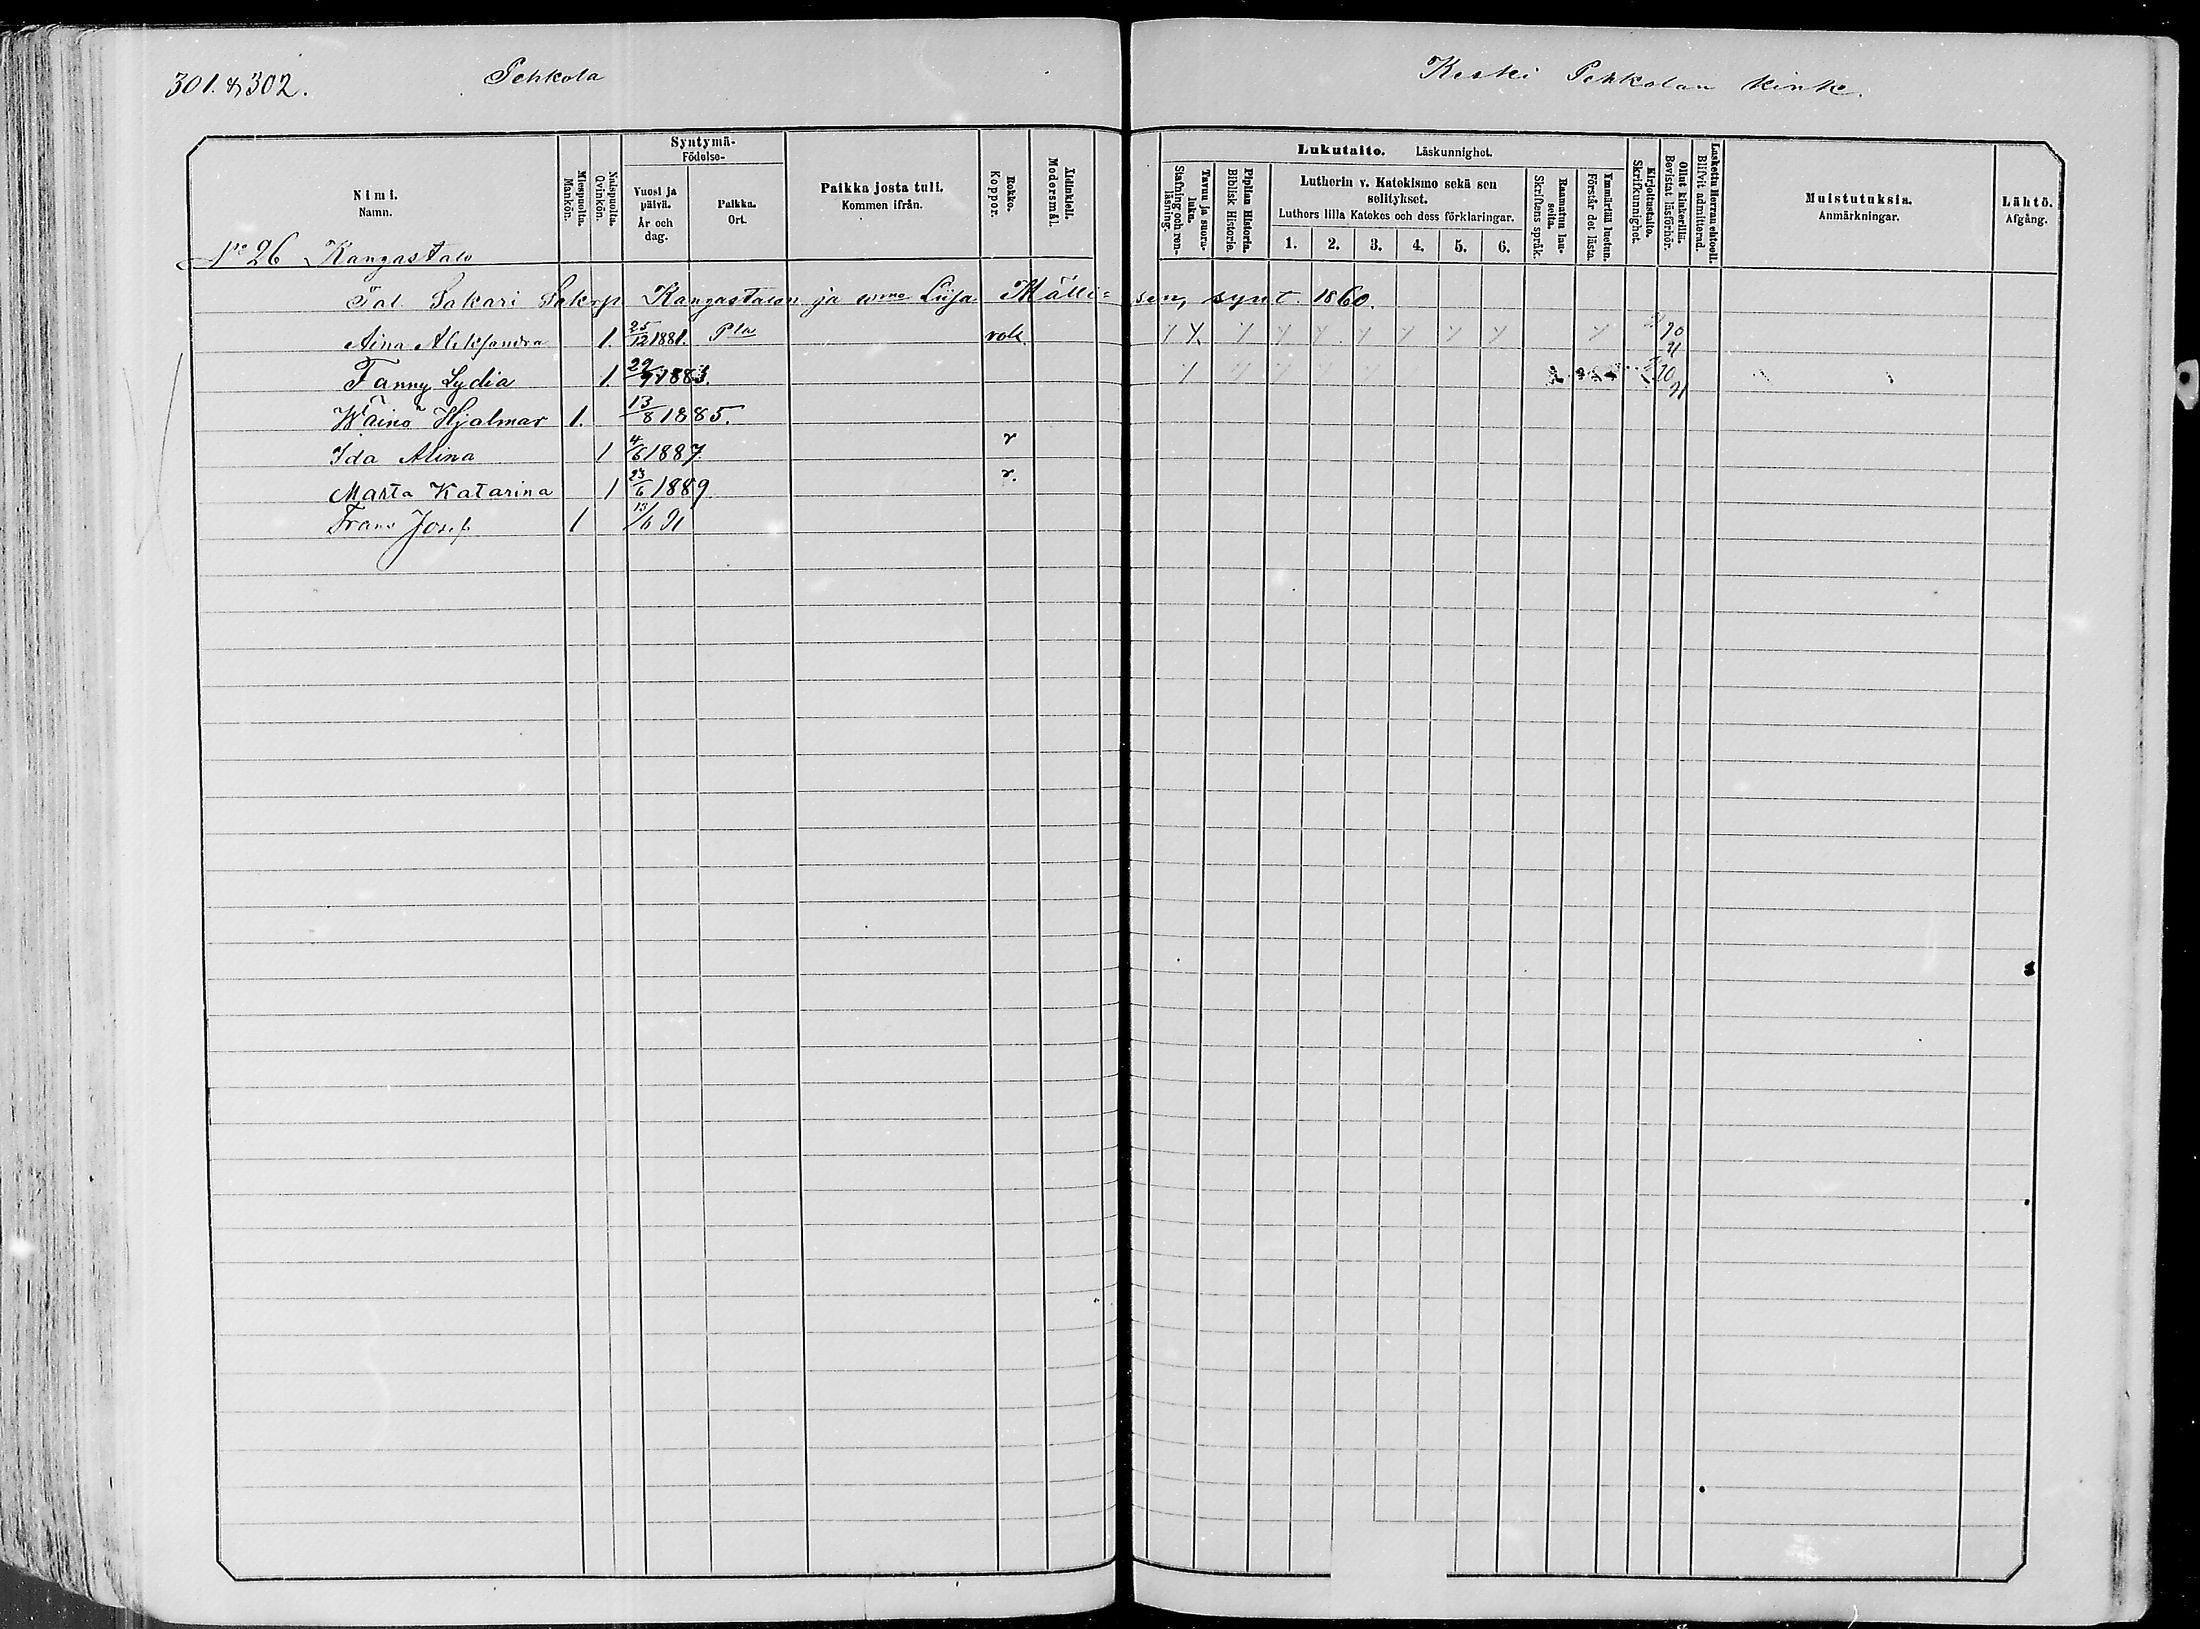 301. & 302. Pehkola
Keski Pehkolan kink.
Nimi.
Namn.
Miespuolia.
Mankön.
Naispuolia.
Qvinkön.
Syntymä-
Födelse-
Vuosi ja päivä.
År och dag.
Paikka.
Ort.
Paikka josta tuli.
Kommen ifrån.
Rokko.
Koppor.
Äidinkieli.
Modersmål.
Tavuu ja suoru-luku.
Stafning och ren-läsning.
Lukutaito. Läskunnighet.
Piplian Historia.
Biblisk Historie.
Lutherin v. Katekismo sekä sen
selitykset.
Luthers lilla Katekes och dess förklaringar.
1. 2. 3. 4. 5. 6.
Raamatun lau-seita.
Skriftens språk.
Ymmärtää luetun.
Förstår det lästa.
Kirjoitustaito.
Skrifkunnighet.
Ollut kinkerillä.
Bevistat läsförhör.
Laskettu Herran ehtool.
Blifvit admitterad.
Muistutuksia.
Anmärkningar.
Lähtö.
Afgång.
No 26 Kangastalo
Tal. Sakari Sakrp Kangastalon ja emne Liisa Mälli=sen, synt. 1860.
Aina Aleksandra 1. 25/12 1881. Pla rok. 90 91
Fanny Lydia 1 29/9 1883. 90 91
Wäinö Hjalmar 1. 13/8 1885.
Ida Alina 1 4/6 1887 r
Marta Katarina 1 23/6 1889 r.
Frans Josef 1 13/6 91